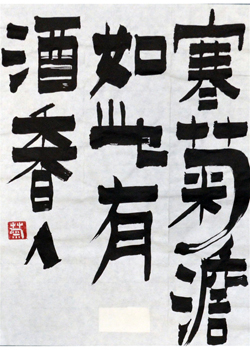 寒菊澹
如此有
酒香人
菊